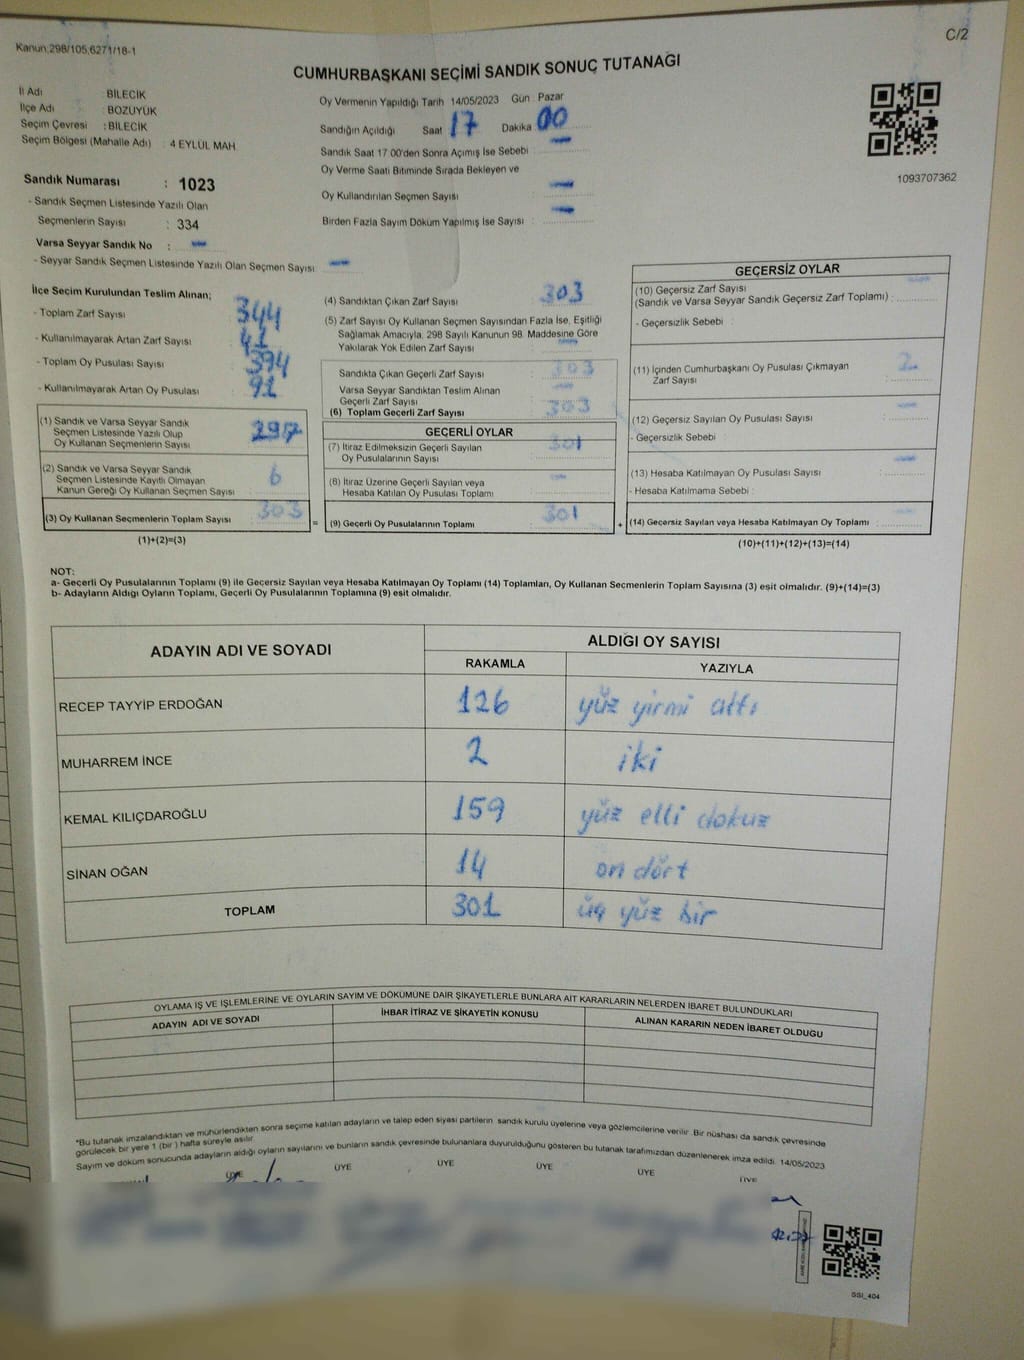 Kanun.298/105,6271/18-1
C/2
CUMHURBAŞKANI SEÇİMİ SANDIK SONUÇ TUTANAĞI
İl Adı : BİLECİK
İlçe Adı : BOZÜYÜK
Seçim Çevresi : BİLECİK
Seçim Bölgesi (Mahalle Adı) : 4 EYLÜL MAH
Sandık Numarası : 1023
- Sandık Seçmen Listesinde Yazılı Olan
Seçmenlerin Sayısı : 334
Varsa Seyyar Sandık No : -
- Seyyar Sandık Seçmen Listesinde Yazılı Olan Seçmen Sayısı: -
Oy Vermenin Yapıldığı Tarih 14/05/2023 Gün Pazar
Sandığın Açıldığı Saat 17 Dakika 00
Sandık Saat 17 00'den Sonra Açımış İse Sebebi : -
Oy Verme Saati Bitiminde Sırada Bekleyen ve
Oy Kullandırılan Seçmen Sayısı : -
Birden Fazla Sayım Döküm Yapılmış İse Sayısı : -
1093707362
İlçe Seçim Kurulundan Teslim Alınan;
- Toplam Zarf Sayısı : 344
- Kullanılmayarak Artan Zarf Sayısı : 41
- Toplam Oy Pusulası Sayısı : 394
- Kullanılmayarak Artan Oy Pusulası : 91
(1) Sandık ve Varsa Seyyar Sandık
Seçmen Listesinde Yazılı Olup
Oy Kullanan Seçmenlerin Sayısı : 297
(2) Sandık ve Varsa Seyyar Sandık
Seçmen Listesinde Kayıtlı Olmayan
Kanun Gereği Oy Kullanan Seçmen Sayısı : 6
(3) Oy Kullanan Seçmenlerin Toplam Sayısı : 303
(1)+(2)=(3)
(4) Sandıktan Çıkan Zarf Sayısı : 303
(5) Zarf Sayısı Oy Kullanan Seçmen Sayısından Fazla İse, Eşitliği
Sağlamak Amacıyla, 298 Sayılı Kanunun 98. Maddesine Göre
Yakılarak Yok Edilen Zarf Sayısı : -
Sandıkta Çıkan Geçerli Zarf Sayısı : 303
Varsa Seyyar Sandıktan Teslim Alınan
Geçerli Zarf Sayısı : -
(6) Toplam Geçerli Zarf Sayısı : 303
GEÇERLİ OYLAR
(7) İtiraz Edilmeksizin Geçerli Sayılan
Oy Pusulalarının Sayısı : 301
(8) İtiraz Üzerine Geçerli Sayılan veya
Hesaba Katılan Oy Pusulası Toplamı : -
= (9) Geçerli Oy Pusulalarının Toplamı : 301
GEÇERSİZ OYLAR
(10) Geçersiz Zarf Sayısı
(Sandık ve Varsa Seyyar Sandık Geçersiz Zarf Toplamı) : -
- Geçersizlik Sebebi :
(11) İçinden Cumhurbaşkanı Oy Pusulası Çıkmayan
Zarf Sayısı : 2
(12) Geçersiz Sayılan Oy Pusulası Sayısı : -
- Geçersizlik Sebebi :
(13) Hesaba Katılmayan Oy Pusulası Sayısı : -
- Hesaba Katılmama Sebebi :
+ (14) Geçersiz Sayılan veya Hesaba Katılmayan Oy Toplamı :
(10)+(11)+(12)+(13)=(14)
NOT:
a- Geçerli Oy Pusulalarının Toplamı (9) ile Geçersiz Sayılan veya Hesaba Katılmayan Oy Toplamı (14) Toplamları, Oy Kullanan Seçmenlerin Toplam Sayısına (3) eşit olmalıdır. (9)+(14)=(3)
b- Adayların Aldığı Oyların Toplamı, Geçerli Oy Pusulalarının Toplamına (9) eşit olmalıdır.
ADAYIN ADI VE SOYADI ALDIĞI OY SAYISI
RAKAMLA YAZIYLA
RECEP TAYYİP ERDOĞAN 126 yüz yirmi altı
MUHARREM İNCE 2 iki
KEMAL KILIÇDAROĞLU 159 yüz elli dokuz
SİNAN OĞAN 14 on dört
TOPLAM 301 üç yüz bir
OYLAMA İŞ VE İŞLEMLERİNE VE OYLARIN SAYIM VE DÖKÜMÜNE DAİR ŞİKAYETLERLE BUNLARA AİT KARARLARIN NELERDEN İBARET BULUNDUKLARI
ADAYIN ADI VE SOYADI İHBAR İTİRAZ VE ŞİKAYETİN KONUSU ALINAN KARARIN NEDEN İBARET OLDUĞU
*Bu tutanak imzalandıktan ve mühürlendikten sonra seçime katılan adayların ve talep eden siyasi partilerin sandık kurulu üyelerine veya gözlemcilerine verilir. Bir nüshası da sandık çevresinde
görülecek bir yere 1 (bir) hafta süreyle asılır.
Sayım ve döküm sonucunda adayların aldığı oyların sayılarını ve bunların sandık çevresinde bulunanlara duyurulduğunu gösteren bu tutanak tarafımızdan düzenlenerek imza edildi. 14/05/2023
ÜYE ÜYE ÜYE ÜYE ÜYE ÜYE
SSI_404